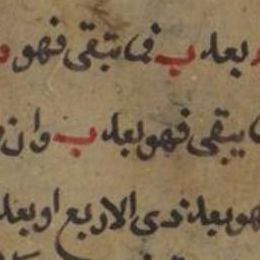 بعد ب فما تبقى فهو
يبقى فهو بعد ب وان
فهو بعد ذى الاربع او بعد